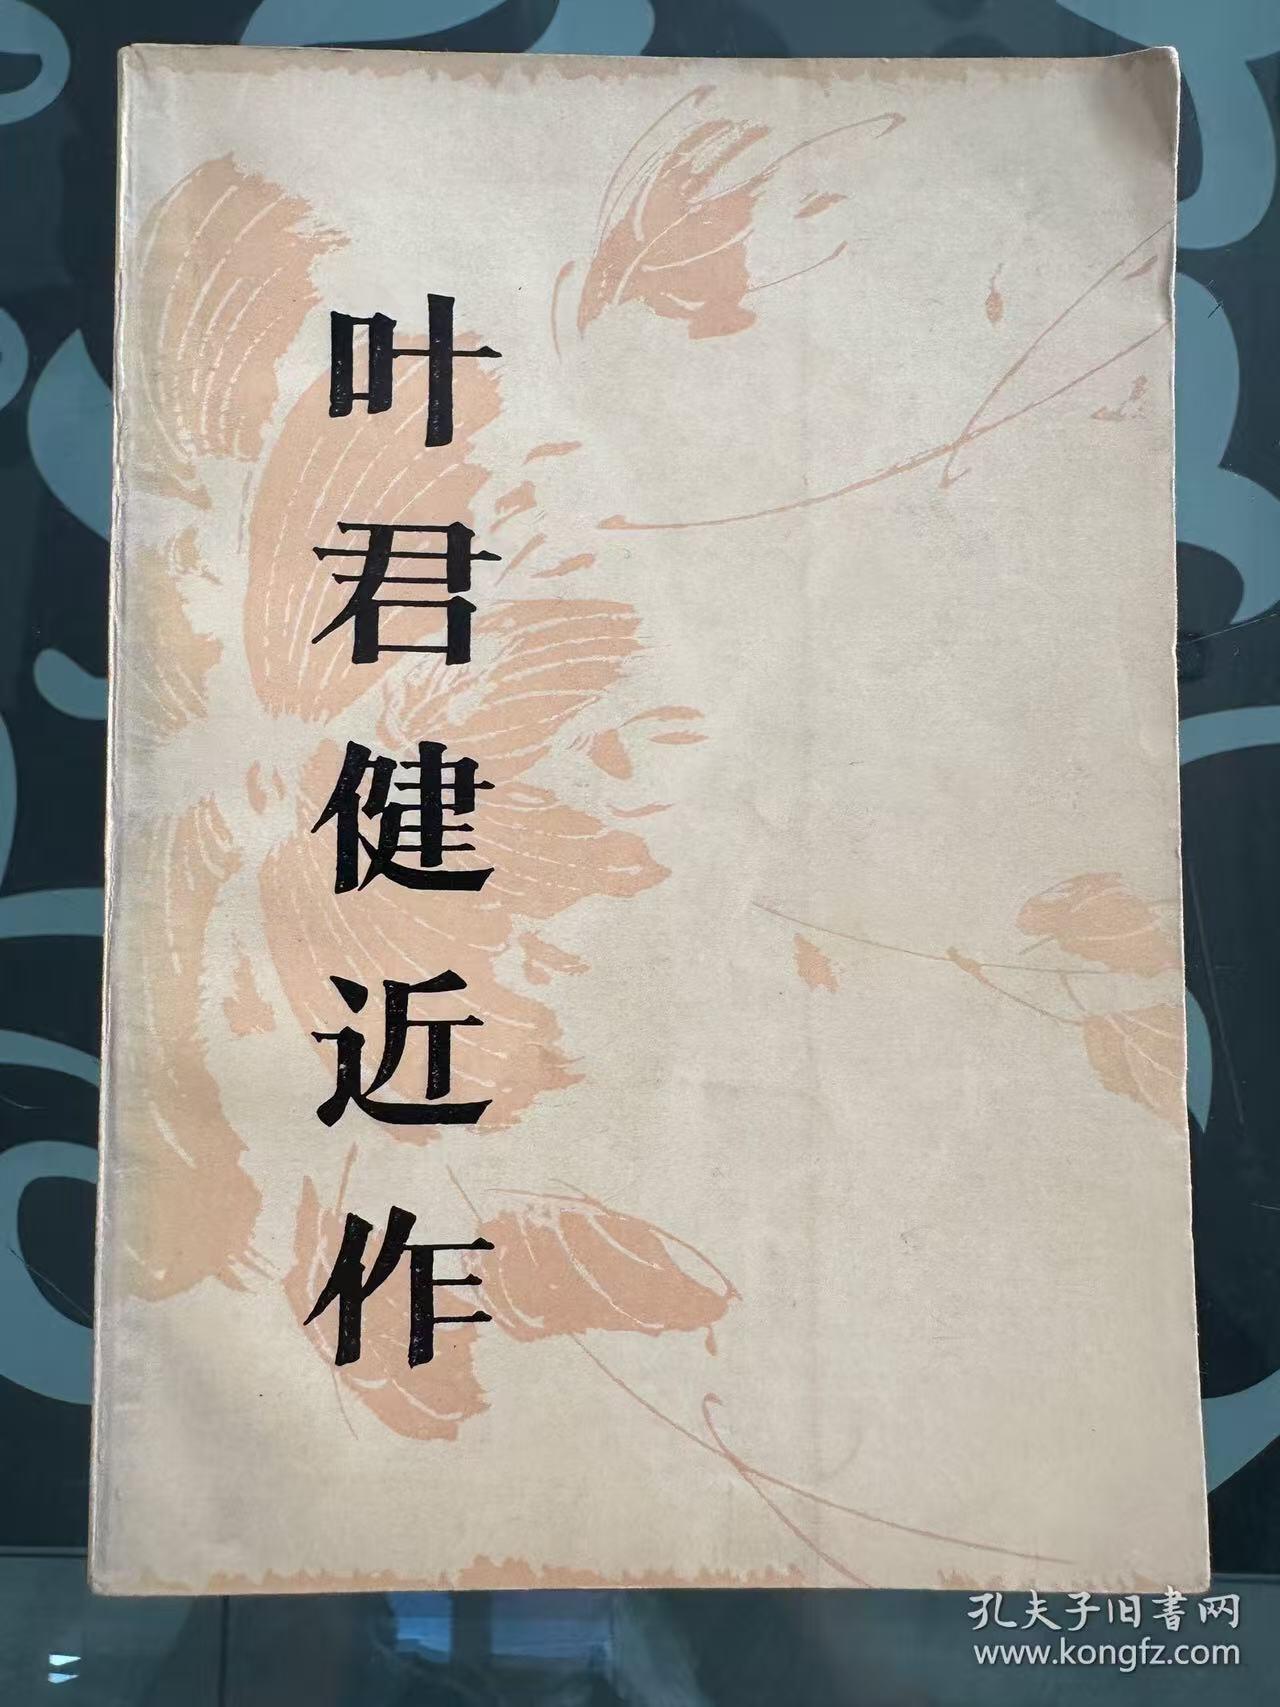 叶君健近作
孔夫子旧書网
www.kongfz.com